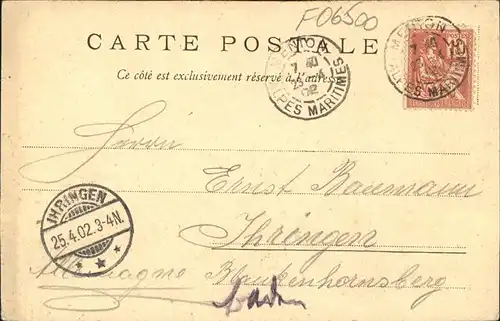 F06500
CARTE POSTALE
Ce côté est exclusivement réservé à l'adresse
MENTON
ALPES MARITIMES
MENTON
ALPES MARITIMES
15
Herrn
Ernst Baumann
Ihringen
IHRINGEN
25.4.02.3-4N.
Allemagne Blankenhornsberg
Baden